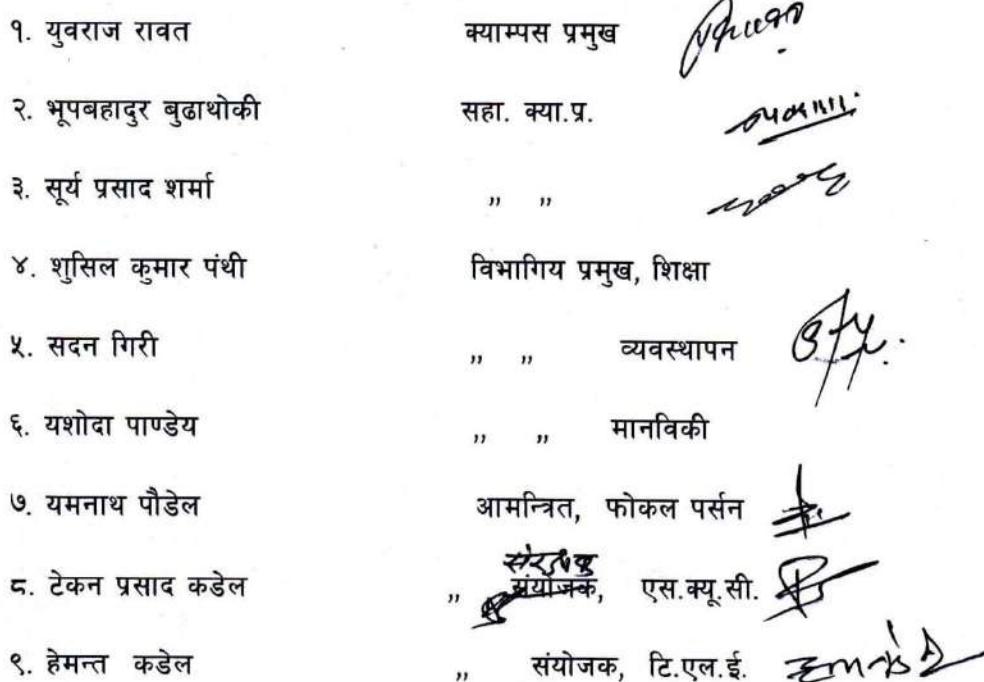 १. युवराज रावत क्याम्पस प्रमुख
२. भूपबहादुर बुढाथोकी सहा. क्या.प्र.
३. सूर्य प्रसाद शर्मा ,, ,,
४. शुसिल कुमार पंथी विभागिय प्रमुख, शिक्षा
५. सदन गिरी ,, ,, व्यवस्थापन
६. यशोदा पाण्डेय ,, ,, मानविकी
७. यमनाथ पौडेल आमन्त्रित, फोकल पर्सन
८. टेकन प्रसाद कडेल ,, संयोजक, एस.क्यू.सी.
९. हेमन्त कडेल ,, संयोजक, टि.एल.ई.